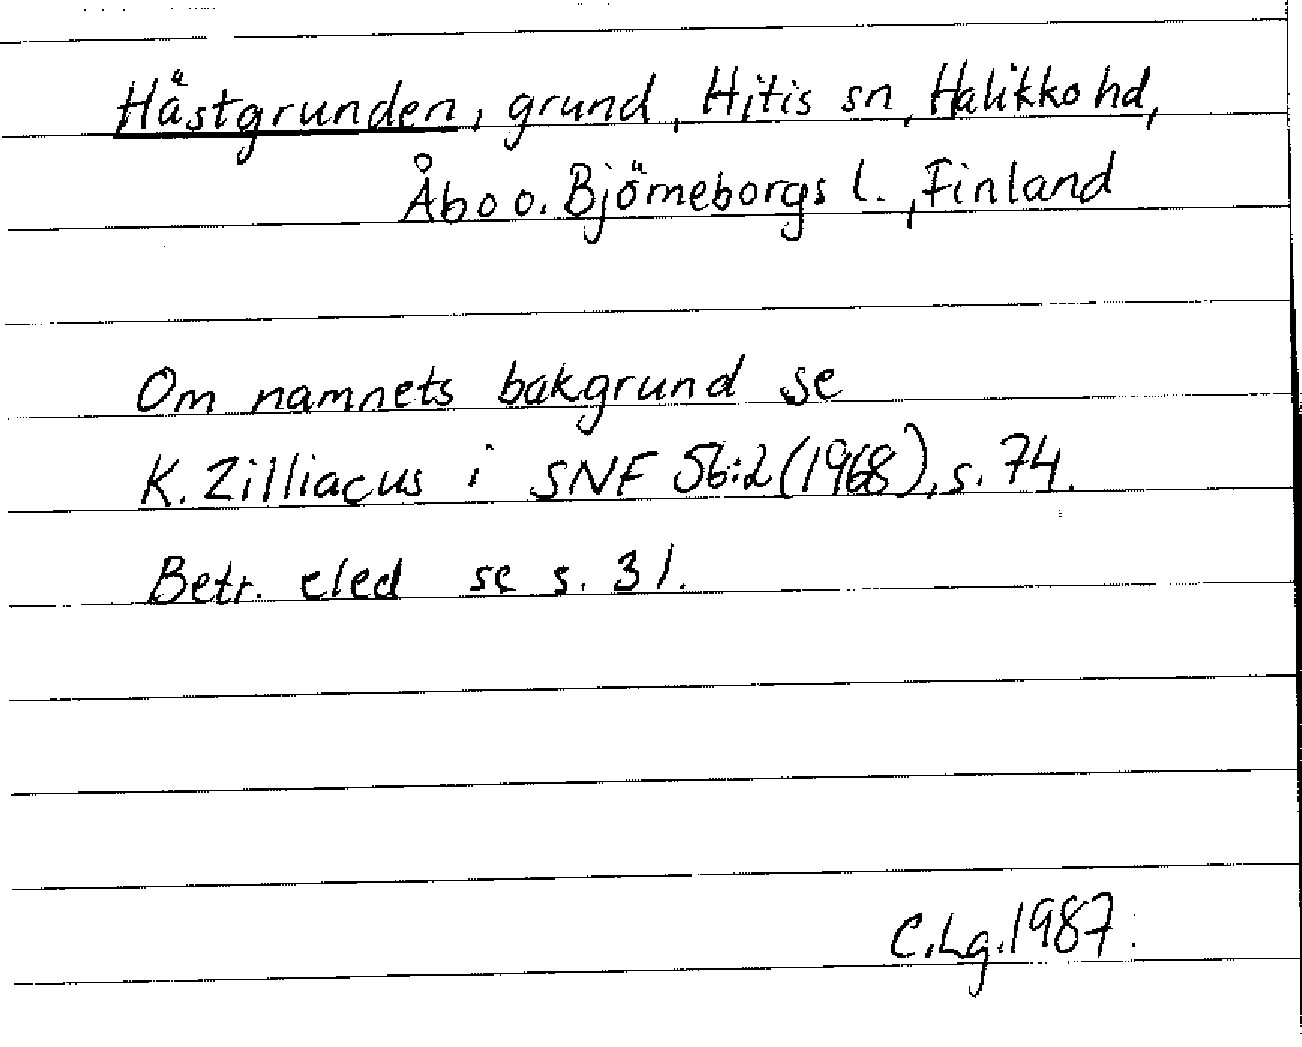 Hästgrunden, grund, Hitis sn, Halikko hd,
Åbo o. Björneborgs l., Finland
Om namnets bakgrund se
K. Zilliacus i SNF 56:2 (1968), s. 74.
Betr. eled se s. 31.
C.Lg. 1987.